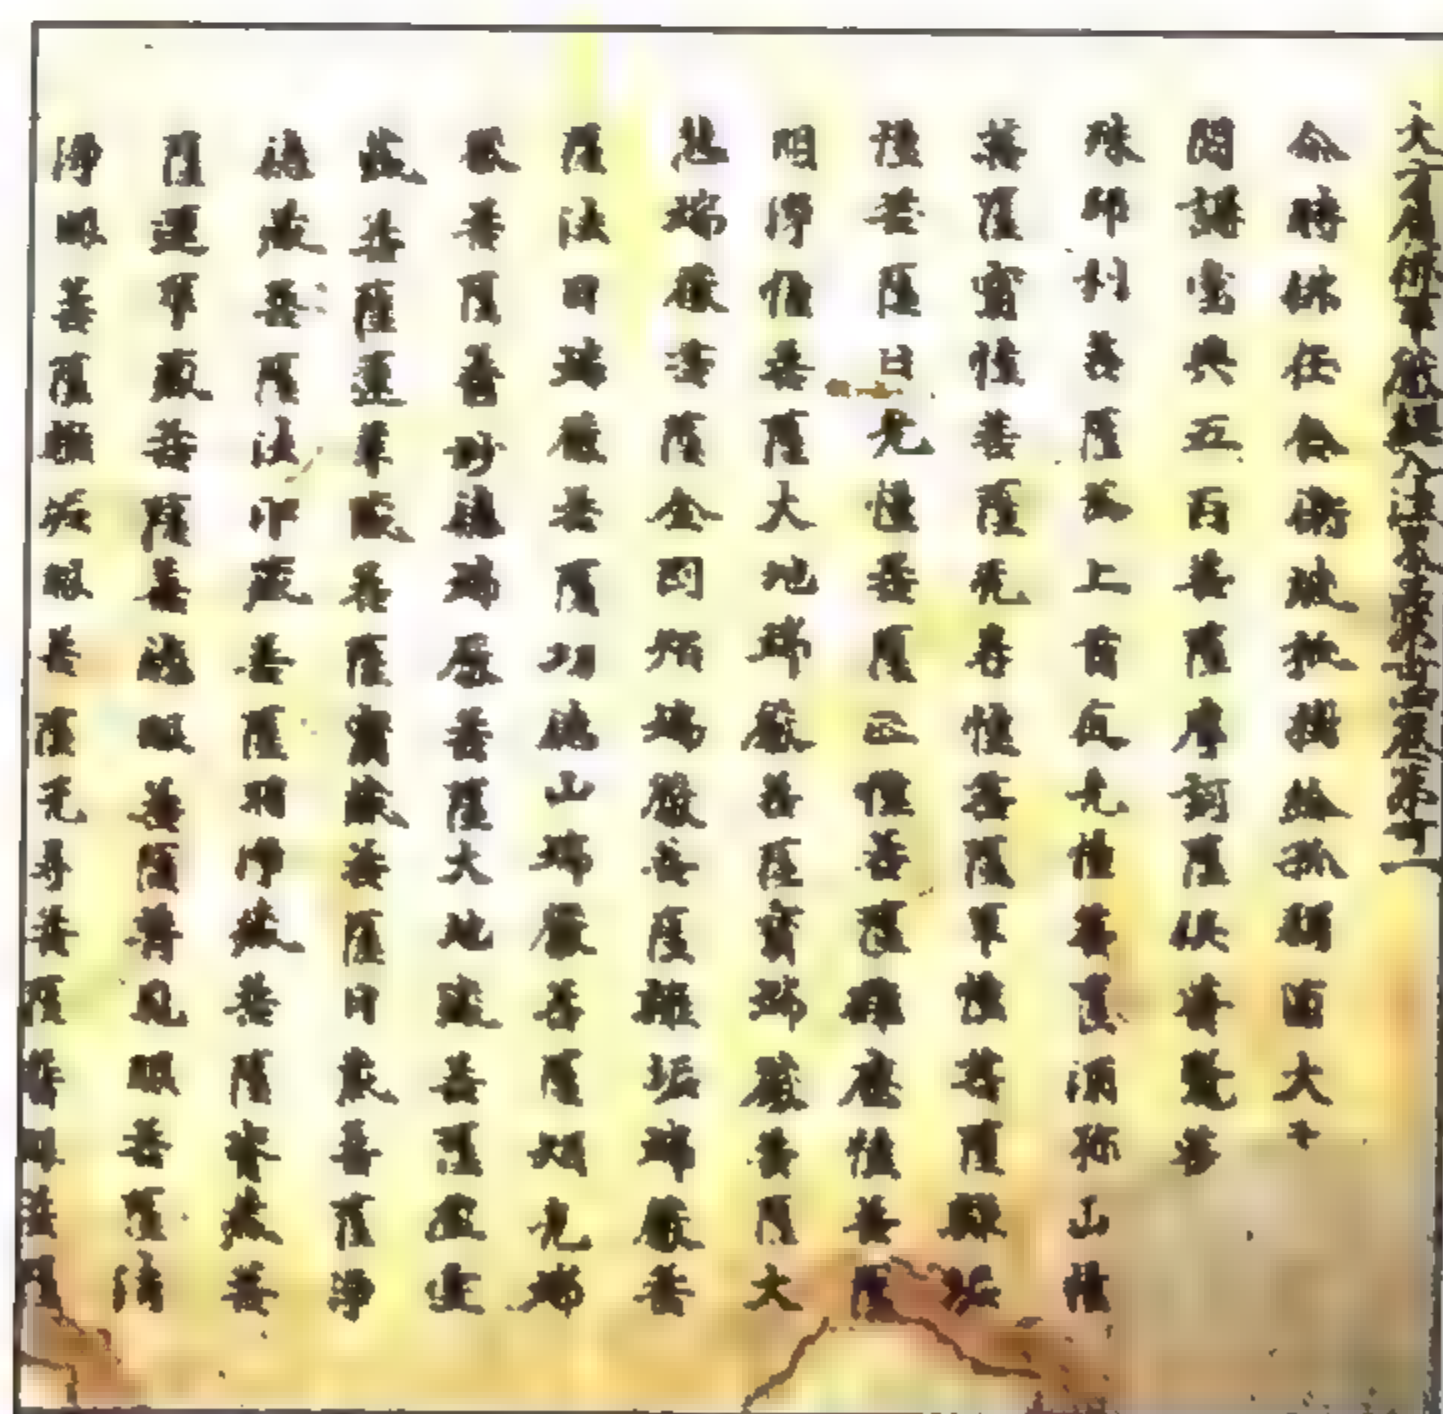 大方廣佛華嚴經入法界品第十一
尒時佛在舍衛城祇樹給孤獨園大
閣講堂與五百菩薩摩訶薩俱普賢菩
殊師利菩薩為上首復光幢菩薩須弥山幢
菩薩寶幢菩薩无㝵幢菩薩華幢菩薩離垢
幢菩薩日光幢菩薩正幢菩薩離塵幢菩薩
明淨幢菩薩大地端嚴菩薩寶端嚴菩薩大
慧端嚴菩薩金剛焰端嚴菩薩離垢端嚴菩
薩法日端嚴菩薩功德山端嚴菩薩焰光端
嚴菩薩普妙德端嚴菩薩大地藏菩薩虛空
藏菩薩蓮華藏菩薩寶藏菩薩日藏菩薩淨
德藏菩薩法印藏菩薩明淨藏菩薩齊藏菩
薩蓮華藏菩薩善德眼菩薩普見眼菩薩清
淨眼菩薩離垢眼菩薩无㝵菩薩普眼菩薩